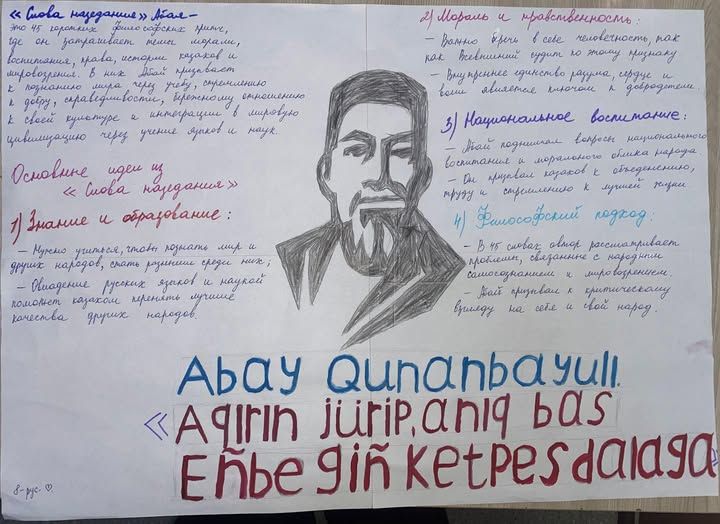 «Слова назедания» Абая -
это 45 коротких философских притч,
где он затрагивает темы морали,
воспитания, права, истории казахов и
мировозрения. В них Абай призывает
к познанию мира через учебу, стремлению
к добру, справедливости, бережному отношению
к своей культуре и интеграции в мировую
цивилизацию через учение языков и наук.
Основные идеи из
«Слова назедания»
1) Знание и образование:
- Нужно учиться, чтобы познать мир и
других народов, стать равными среди них;
- Овладение русских языков и наукой
поможет казахом перенять лучшие
качества других народов.
2) Мораль и нравственность:
- Важно беречь в себе человечность, так
как Всевышний судит по этому признаку
- Внутреннее единство разума, сердце и
воли является ключом к добродетели.
3) Национальное воспитание:
- Абай поднимал вопросы национального
воспитания и морального облика народа
- Он призывал казахов к объеденению,
труду и стремлению к лучшей жизни
4) Философский подход:
- В 45 словах автор рассматривает
проблемы, связанные с народным
самосознанием и мировозрением.
- Абай призывал к критическому
взгляду на себя и свой народ.
Abay Qunanbayulı.
«Aqırın jürip, anıq bas
Eñbegiñ ketpes dalaga»
8-рус. ♡.